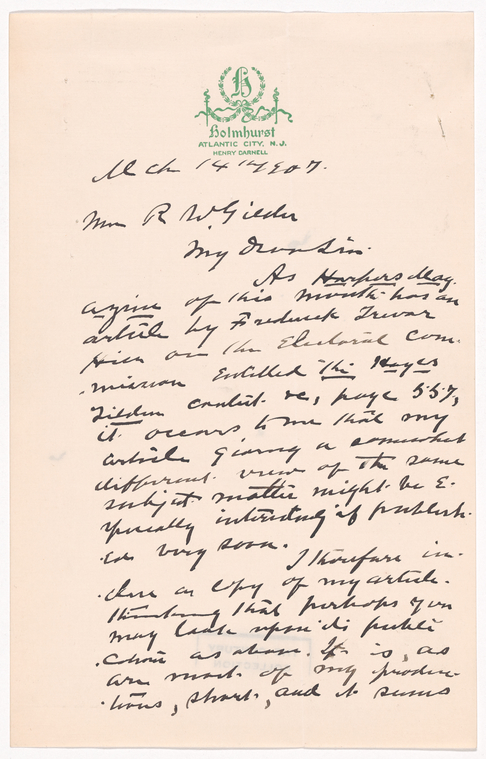 H
Holmhurst
ATLANTIC CITY, N.J.
HENRY DARNELL
Mch 14th 1907.
Mr R W. Gilder
My Dear Sir.
As Harpers Mag-
azine of this month has an
article by Frederick Trevor
Hill on the Electoral Com-
mission entitled The Hayes
Tilden contest &c, page 557,
it occurs to me that my
article giving a somewhat
different view of the same
subject matter might be e-
specially interesting if publish-
ed very soon.
I therefore in-
close a copy of my article.
thinking that perhaps you
may look upon its publi
cation as above. It is, as
are most of my produc-
tions, short, and it seems